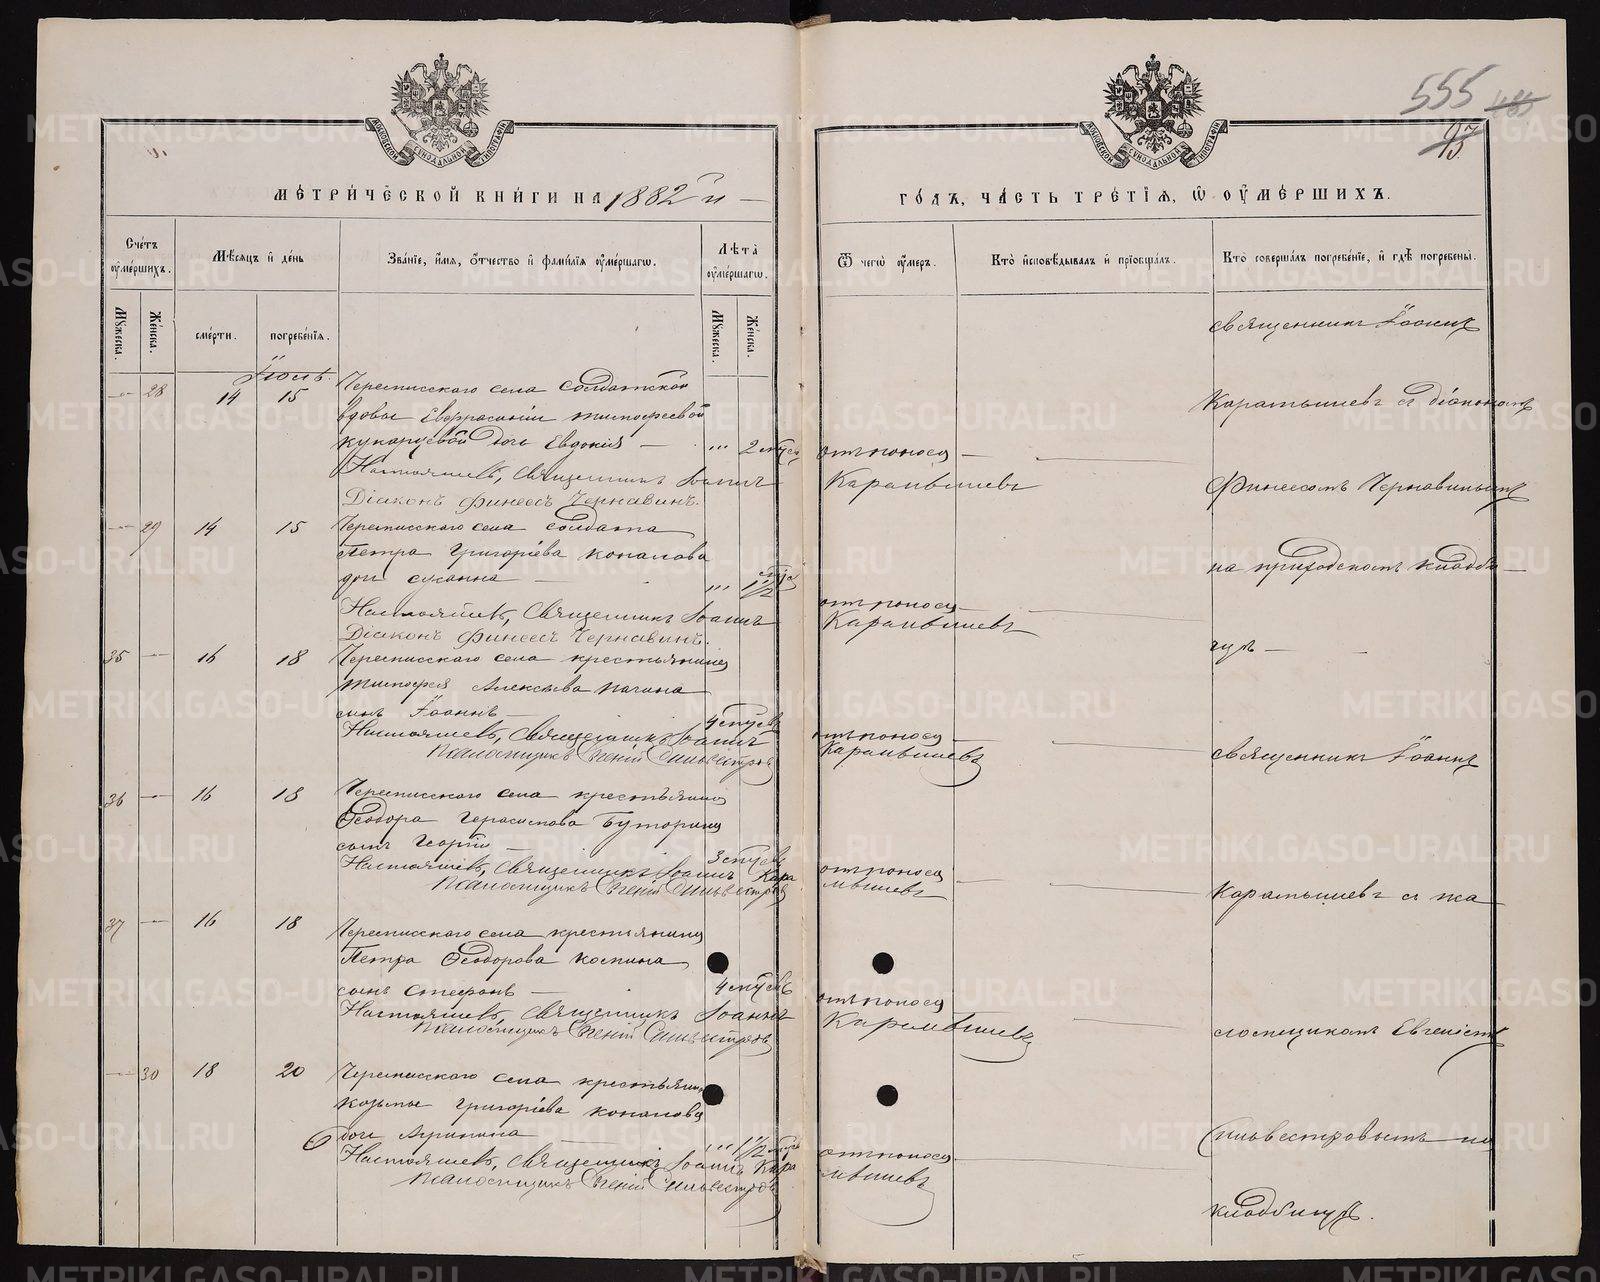 555 485
93
МОСКОВСКОЙ СѴНОДАЛЬНОЙ ТИПОГРАФІИ
МОСКОВСКОЙ СѴНОДАЛЬНОЙ ТИПОГРАФІИ
МЕТРИЧЕСКОЙ КНИГИ НА 1882 й
ГОДЪ, ЧАСТЬ ТРЕТІЯ, Ѡ ОУМЕРШИХЪ.
Счетъ оумершихъ.
Мѣсяцъ и день
Званіе, имя, отчество и фамилія оумершагѡ.
Лѣта оумершагѡ.
Ѿ чегѡ оумеръ.
Кто исповѣдывалъ и пріобщалъ.
Кто совершалъ погребеніе, и гдѣ погребены.
Мужеска.
Женска.
смерти.
погребенія.
Мужеска.
Женска.
Іюль.
28 14 15 Черемисскаго села солдатской
вдовы Евфрасиніи Тимофеевой
дочь Евдокія — " 2 отъ поноса —
Настоятель, Священникъ Іоаннъ Карамышевъ
Діаконъ Финеесъ Чернавинъ.
29 14 15 Черемисскаго села солдата
Петра Григоріева Коналова
дочь — " 1 1/2 отъ поноса
Настоятель, Священникъ Іоаннъ Карамышевъ
Діаконъ Финеесъ Чернавинъ.
35 — 16 18 Черемисскаго села крестьянина
Тимофея Алексѣева
сынъ Іоаннъ — 4 отъ поноса —
Настоятель, Священникъ Іоаннъ Карамышевъ
Псаломщикъ Евгеній Сильвестровъ
36 — 16 18 Черемисскаго села крестьянина
Ѳеодора Герасимова Буторина
сынъ Георгій — 3 отъ поноса
Настоятель, Священникъ Іоаннъ Карамышевъ
Псаломщикъ Евгеній Сильвестровъ
37 — 16 18 Черемисскаго села крестьянина
Петра Ѳеодорова Костина
сынъ Стефанъ — 4 отъ поноса
Настоятель, Священникъ Іоаннъ Карамышевъ
Псаломщикъ Евгеній Сильвестровъ
— 30 18 20 Черемисскаго села крестьянина
Козьмы Григоріева Коналова
дочь " 1 1/2 отъ поноса
Настоятель, Священникъ Іоаннъ Карамышевъ
Псаломщикъ Евгеній Сильвестровъ
священникъ Іоаннъ
Карамышевъ съ діакономъ
Финеесомъ Чернавинымъ
на приходскомъ кладби—
щѣ —
священникъ Іоаннъ
Карамышевъ съ пса
ломщикомъ Евгеніемъ
Сильвестровымъ на
кладбищѣ.
METRIKI.GASO-URAL.RU